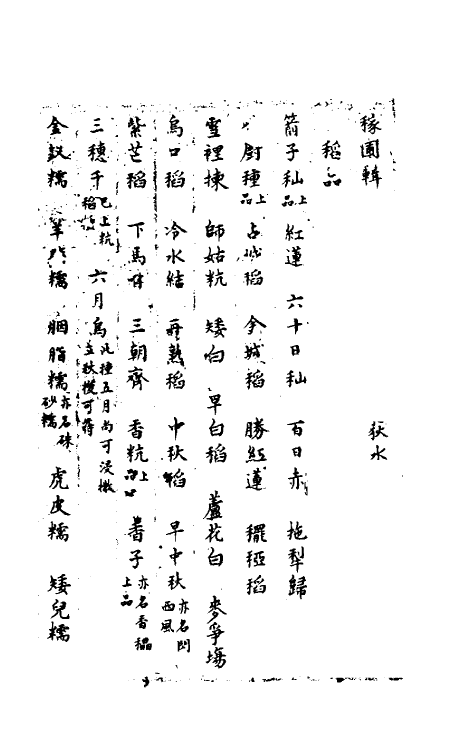 稼圃輯
荻水
稻品
箭子秈上品 紅蓮 六十日秈 百日赤 拖犁歸
厨種上品 占城稻 金城稻 勝紅蓮 䆉稏稻
雪裡揀 師姑秔 矮白 早白稻 蘆花白 麥爭塲
烏口稻 冷水結 再熟稻 中秋稻 早中秋亦名閃西風
紫芒稻 下馬 三朝齊 香秔上品 香子亦名香稻上品
三穗千巳上秔稻 六月烏此種五月尚可浸撒立秋後可蒔
金釵糯 羊 糯 胭脂糯亦名硃砂糯 虎皮糯 矮兒糯